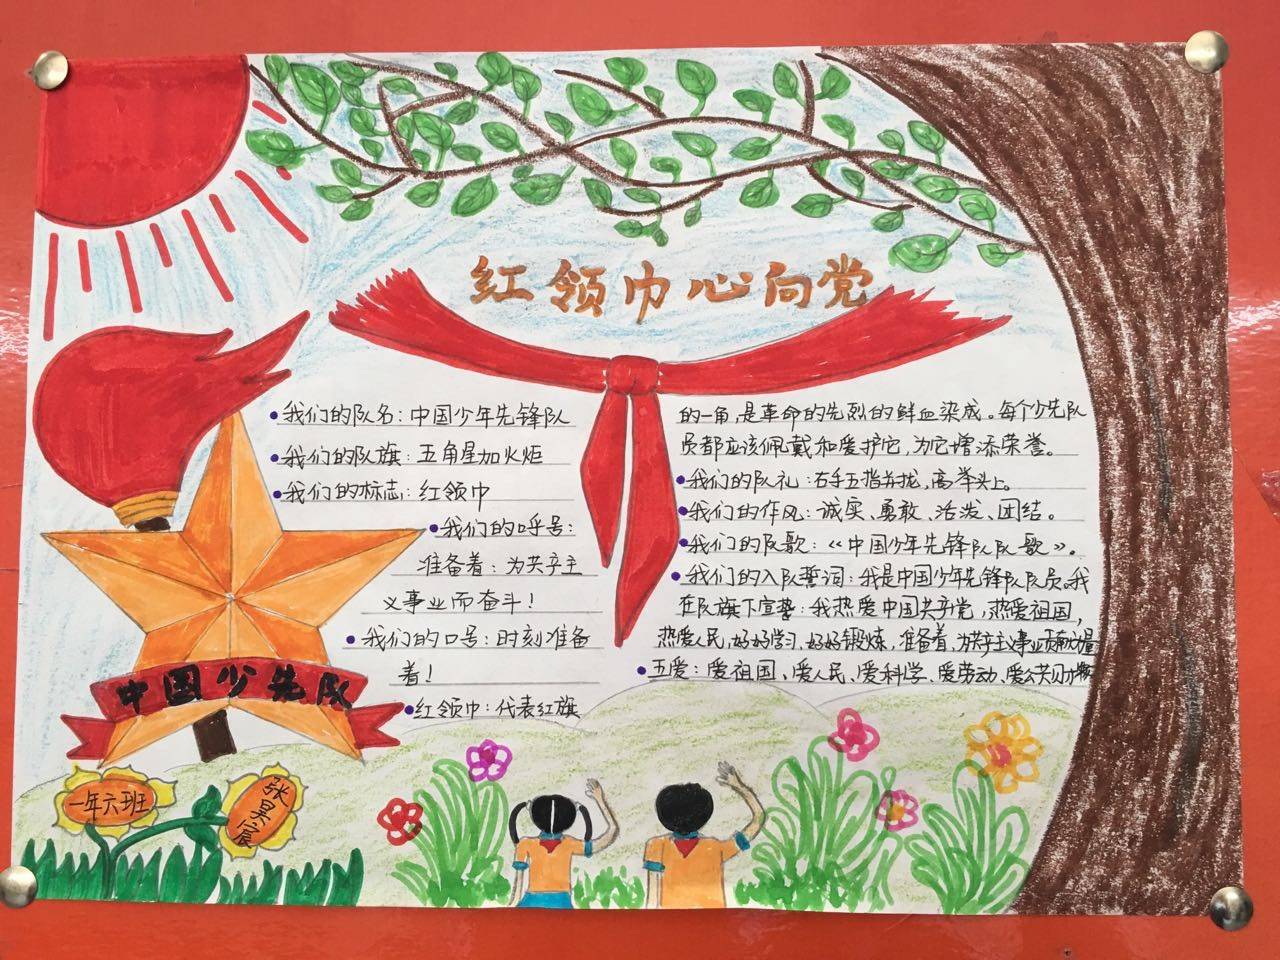 红领巾心向党
我们的队名：中国少年先锋队
我们的队旗：五角星加火炬
我们的标志：红领巾
我们的呼号：
准备着：为共产主
义事业而奋斗！
我们的口号：时刻准备
着！
红领巾：代表红旗
的一角，是革命的先烈的鲜血染成。每个少先队
员都应该佩戴和爱护它，为它增添荣誉。
我们的队礼：右手五指并拢，高举头上。
我们的作风：诚实、勇敢、活泼、团结。
我们的队歌：《中国少年先锋队队歌》。
我们的入队誓词：我是中国少年先锋队队员。我
在队旗下宣誓：我热爱中国共产党，热爱祖国，
热爱人民，好好学习、好好锻炼，准备着，为共产主义事业贡献力量
五爱：爱祖国、爱人民、爱科学、爱劳动、爱公共财物
中国少先队
一年六班
张昊宸